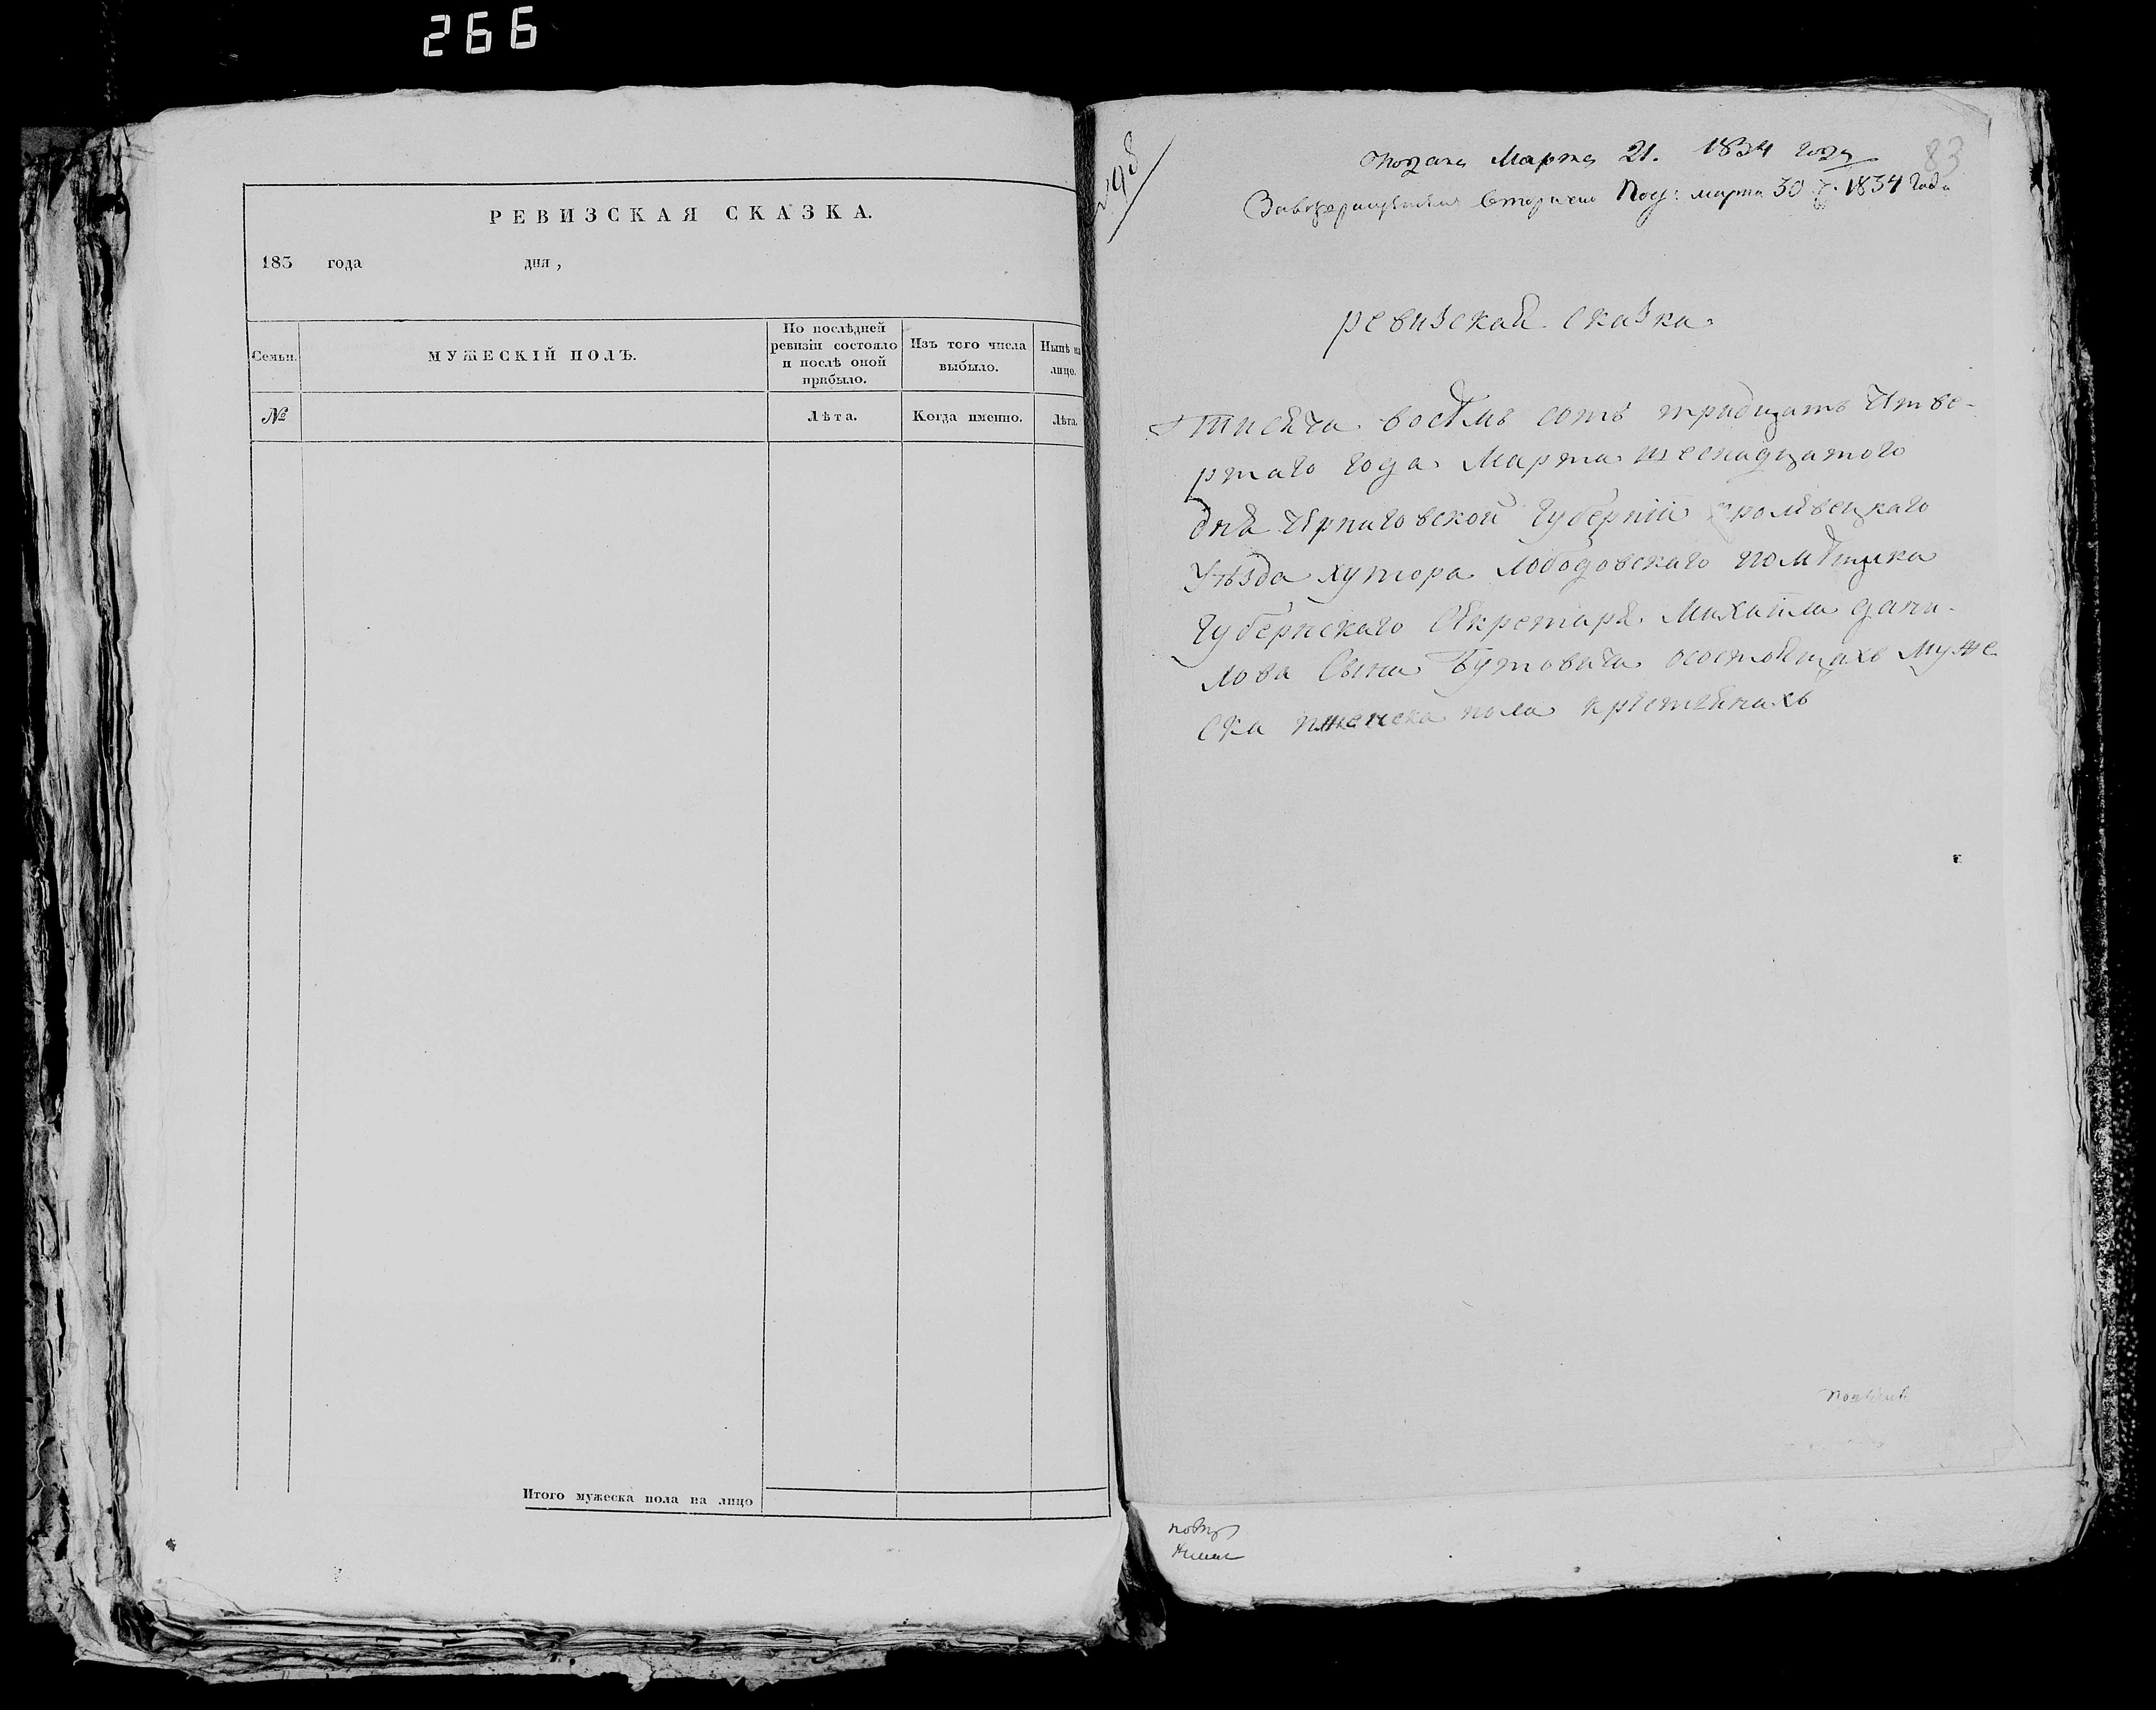 266
РЕВИЗСКАЯ СКАЗКА.
183 года дня,
Семьи.
МУЖЕСКІЙ ПОЛЪ.
По послѣдней ревизіи состояло и послѣ оной прибыло.
Изъ того числа выбыло.
Нынѣ на лицо.
№
Лѣта.
Когда именно.
Лѣта.
Итого мужеска пола на лицо
83
Подана Марта 21. 1834 года
вторично Под: марта 30 1834 года
ревизская сказка
тисяча восемь сотъ тридцать четве-
ртаго года Марта шеснадцатого
дня Черниговской Губерніи Кролевецкаго
Уѣзда хутора Лободовскаго помѣщика
Губернскаго Секретаря Михаила Дани-
лова Сына Бутовича осостоящихъ муже
ска иженска пола крестянахъ